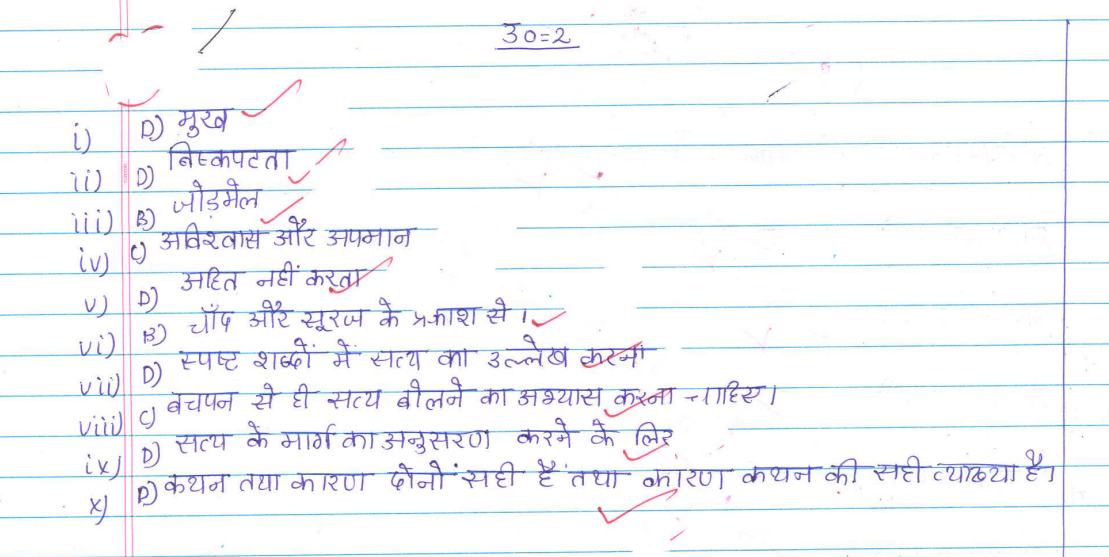 उ०=2
i) D) मुख
ii) D) निष्कपटता
iii) B) जोड़मेल
iv) C) अविश्वास और अपमान
v) D) अहित नहीं करता
vi) B) चाँद और सूरज के प्रकाश से।
vii) D) स्पष्ट शब्दों में सत्य का उल्लेख करना
viii) C) बचपन से ही सत्य बोलने का अभ्यास करना चाहिए।
ix) D) सत्य के मार्ग का अनुसरण करने के लिए
x) D) कथन तथा कारण दोनों सही हैं तथा कारण कथन की सही व्याख्या है।